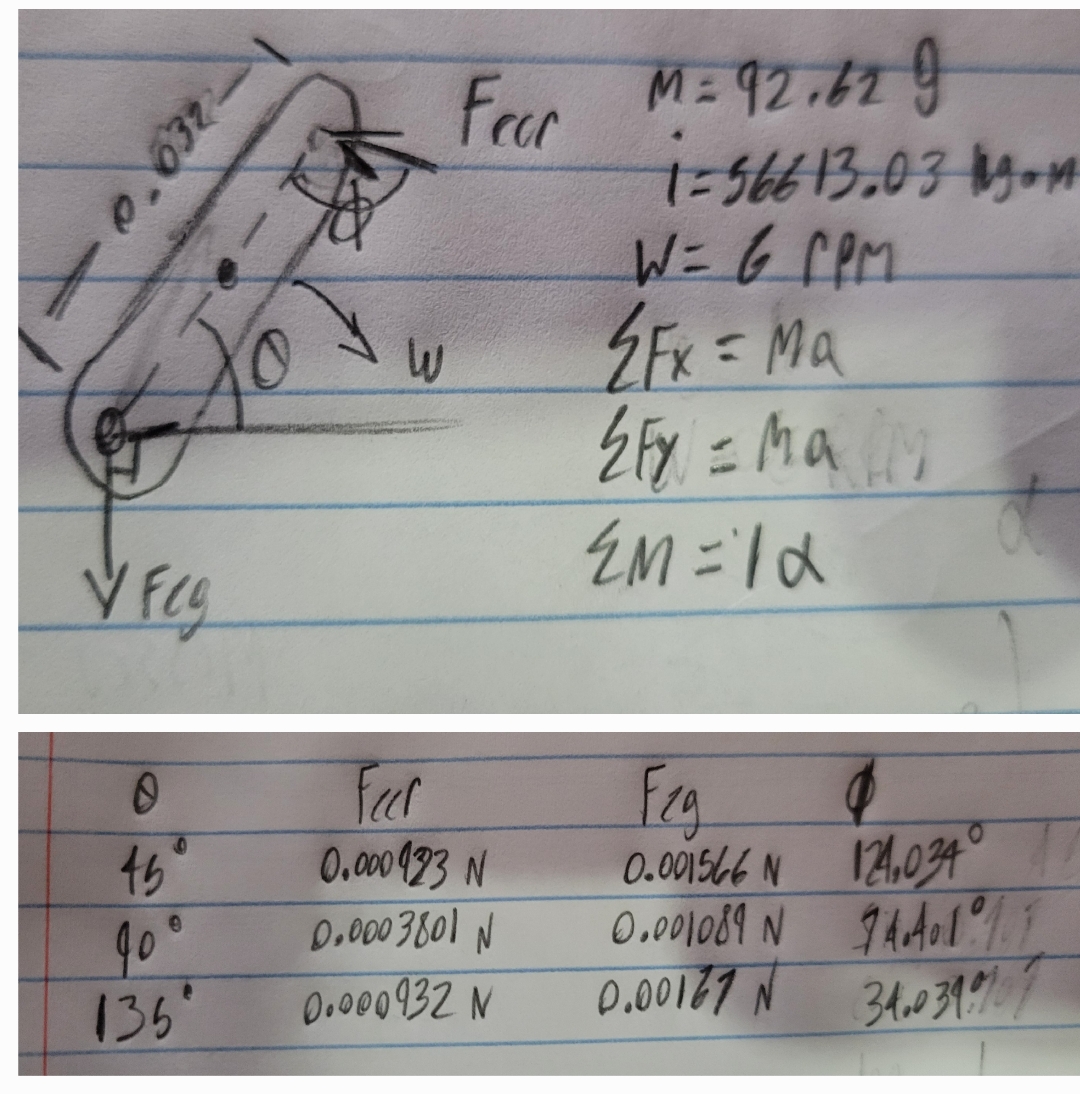 0.032
Fccr
ϕ
θ
W
Fcg
M = 92.62 g
i = 56613.03 kg·m
W = 6 rpm
ΣFx = Ma
ΣFy = Ma
ΣM = Iα
θ Fccr Fcg ϕ
45° 0.000923 N 0.001566 N 124.034°
90° 0.0003801 N 0.001089 N 74.401°
135° 0.000932 N 0.00167 N 34.039°